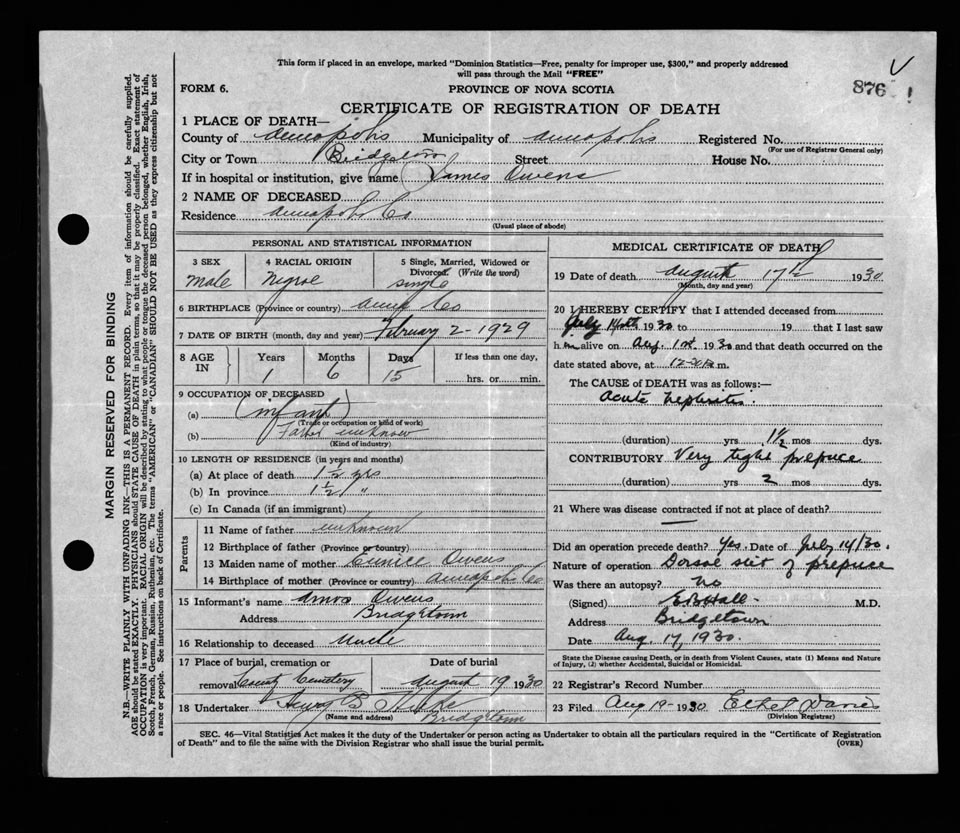 This form if placed in an envelope, marked "Dominion Statistics—Free, penalty for improper use, $300," and properly addressed
will pass through the Mail "FREE"
876
FORM 6.
PROVINCE OF NOVA SCOTIA
CERTIFICATE OF REGISTRATION OF DEATH
1 PLACE OF DEATH—
County of Annapolis Municipality of Annapolis Registered No.
(For use of Registrar General only)
City or Town Bridgetown Street House No.
If in hospital or institution, give name James Owens
2 NAME OF DECEASED
Residence Annapolis Co
(Usual place of abode)
PERSONAL AND STATISTICAL INFORMATION
3 SEX
male
4 RACIAL ORIGIN
Negroe
5 Single, Married, Widowed or
Divorced. (Write the word)
single
6 BIRTHPLACE (Province or country) Anna Co
7 DATE OF BIRTH (month, day and year) February 2 - 1929
8 AGE IN
Years 1
Months 6
Days 15
If less than one day,
hrs. or min.
9 OCCUPATION OF DECEASED
(a) (infant)
(Trade or occupation or kind of work)
(b) unknown
(Kind of industry)
10 LENGTH OF RESIDENCE (in years and months)
(a) At place of death 1½ yrs
(b) In province 1½ "
(c) In Canada (if an immigrant)
Parents
11 Name of father unknown
12 Birthplace of father (Province or country)
13 Maiden name of mother Owens
14 Birthplace of mother (Province or country) Annapolis Co
15 Informant's name Amos Owens
Address Bridgetown
16 Relationship to deceased Uncle
17 Place of burial, cremation or
removal County Cemetery
Date of burial
August 19 1930
18 Undertaker Henry B
(Name and address) Bridgetown
MEDICAL CERTIFICATE OF DEATH
19 Date of death August 17th 1930
(Month, day and year)
20 I HEREBY CERTIFY that I attended deceased from
July 14th 1930 to 19 that I last saw
him alive on Aug. 1st. 1930 and that death occurred on the
date stated above, at m.
The CAUSE of DEATH was as follows:—
Acute Nephritis.
(duration) yrs 1½ mos dys.
CONTRIBUTORY Very tight prepuce
(duration) yrs 2 mos dys.
21 Where was disease contracted if not at place of death?
—
Did an operation precede death? Yes. Date of July 14/30.
Nature of operation Dorsal slit of prepuce
Was there an autopsy? no
(Signed) E B Hall M.D.
Address Bridgetown
Date Aug. 17, 1930.
State the Disease causing Death, or in death from Violent Causes, state (1) Means and Nature
of Injury, (2) whether Accidental, Suicidal or Homicidal.
22 Registrar's Record Number
23 Filed Aug 19 - 1930 Ethel Davies
(Division Registrar)
SEC. 46—Vital Statistics Act makes it the duty of the Undertaker or person acting as Undertaker to obtain all the particulars required in the "Certificate of Registration
of Death" and to file the same with the Division Registrar who shall issue the burial permit.
(OVER)
MARGIN RESERVED FOR BINDING
N.B.—WRITE PLAINLY WITH UNFADING INK—THIS IS A PERMANENT RECORD. Every item of information should be carefully supplied.
AGE should be stated EXACTLY. PHYSICIANS should STATE CAUSE OF DEATH in plain terms, so that it may be properly classified. Exact statement of
OCCUPATION is very important. RACIAL ORIGIN will be described by stating to what people or tongue the deceased person belonged, whether English, Irish,
Scotch, French, German, Russian, Ruthenian, etc. The terms "AMERICAN" or "CANADIAN" SHOULD NOT BE USED as they express citizenship but not
a race or people. See instructions on back of Certificate.